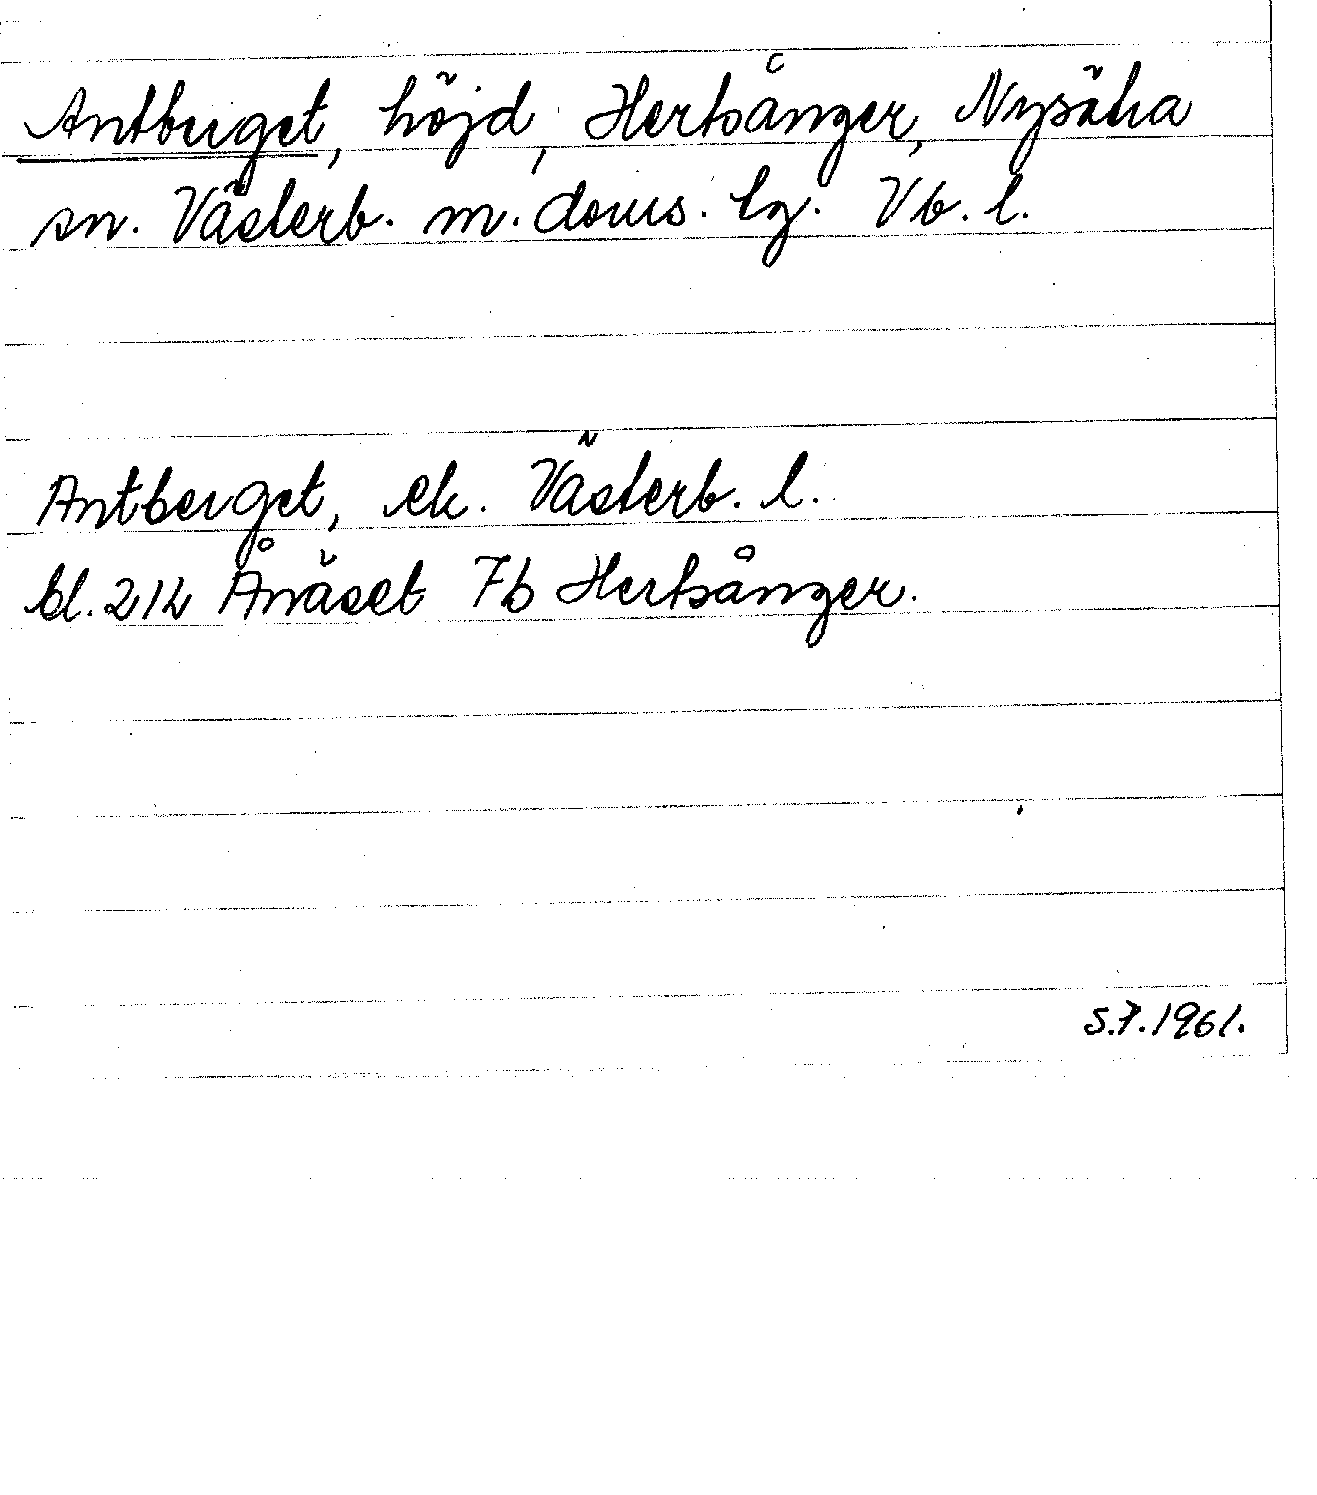 Antberget, höjd, Hertsånger, Nysätra
sn. Västerb. m. doms. lg. Vb. l.
Antberget, ek. Västerb. l.
bl. 212 Ånäset 7b Hertsånger.
5.7.1961.